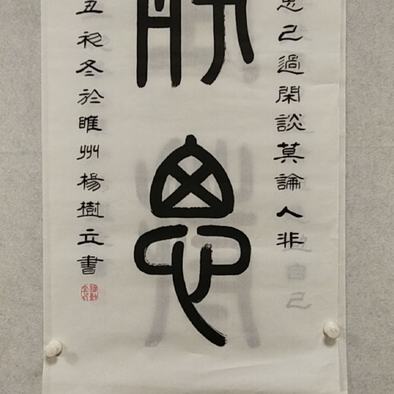 思己過閑談莫論人非
思
丑初冬於睢州楊樹立書